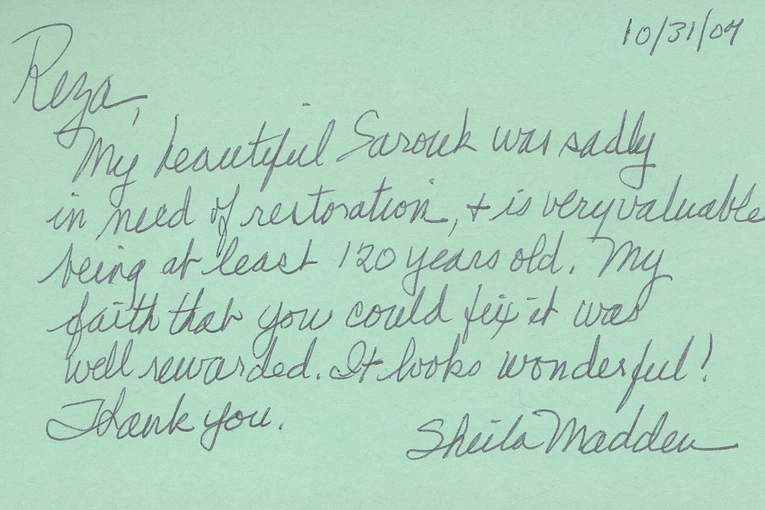 10/31/04
Reza,
My beautiful Sarouk was sadly
in need of restoration, + is very valuable
being at least 120 years old. My
faith that you could fix it was
well rewarded. It looks wonderful!
Thank you.
Sheila Madden